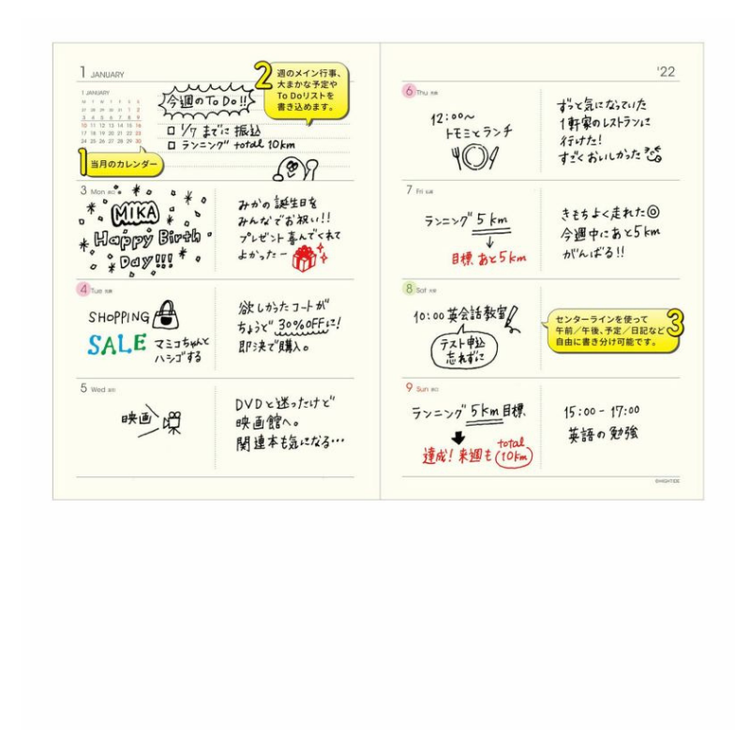 1 JANUARY
1 JANUARY
今週のTo Do!!
□ 1/7 までに 振込
□ ランニング total 10km
2 週のメイン行事、
大まかな予定や
To Doリストを
書き込めます。
1 当月のカレンダー
3 Mon
MIKA
Happy Birth
Day!!!
みかの誕生日を
みんなでお祝い!!
プレゼント喜んでくれて
よかったー
4 Tue
SHOPPING
SALE マミコちゃんと
ハシゴする
欲しかったコートが
ちょうど 30%OFFに!
即決で購入。
5 Wed
映画
DVDと迷ったけど
映画館へ。
関連本も気になる…
'22
6 Thu
12:00~
トモミとランチ
ずっと気になっていた
1軒家のレストランに
行けた!
すごくおいしかった
7 Fri
ランニング 5km
↓
目標 あと5km
きもちよく走れた◎
今週中にあと5km
がんばる!!
8 Sat
10:00 英会話教室
テスト申込
忘れずに
センターラインを使って
午前/午後、予定/日記など
自由に書き分け可能です。 3
9 Sun
ランニング 5km目標
達成! 来週も total
10km
15:00-17:00
英語の勉強
©HIGHTIDE